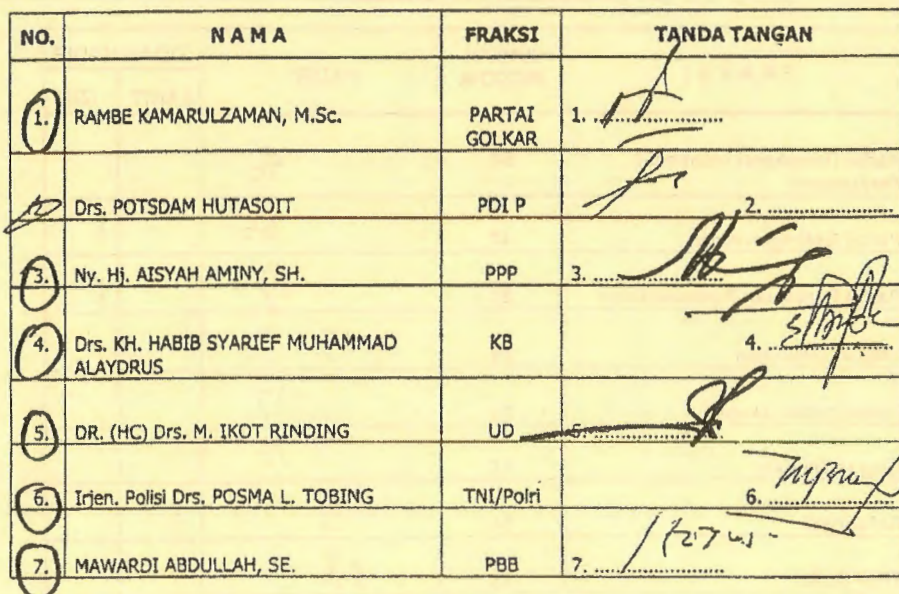 NO. N A M A FRAKSI TANDA TANGAN
1. RAMBE KAMARULZAMAN, M.Sc. PARTAI 1. ....................
GOLKAR
Drs. POTSDAM HUTASOIT PDI P 2. ....................
3. Ny. Hj. AISYAH AMINY, SH. PPP 3. ....................
4. Drs. KH. HABIB SYARIEF MUHAMMAD KB 4. ....................
ALAYDRUS
5. DR. (HC) Drs. M. IKOT RINDING UD 5. ....................
6. Irjen. Polisi Drs. POSMA L. TOBING TNI/Polri 6. ....................
7. MAWARDI ABDULLAH, SE. PBB 7. ....................